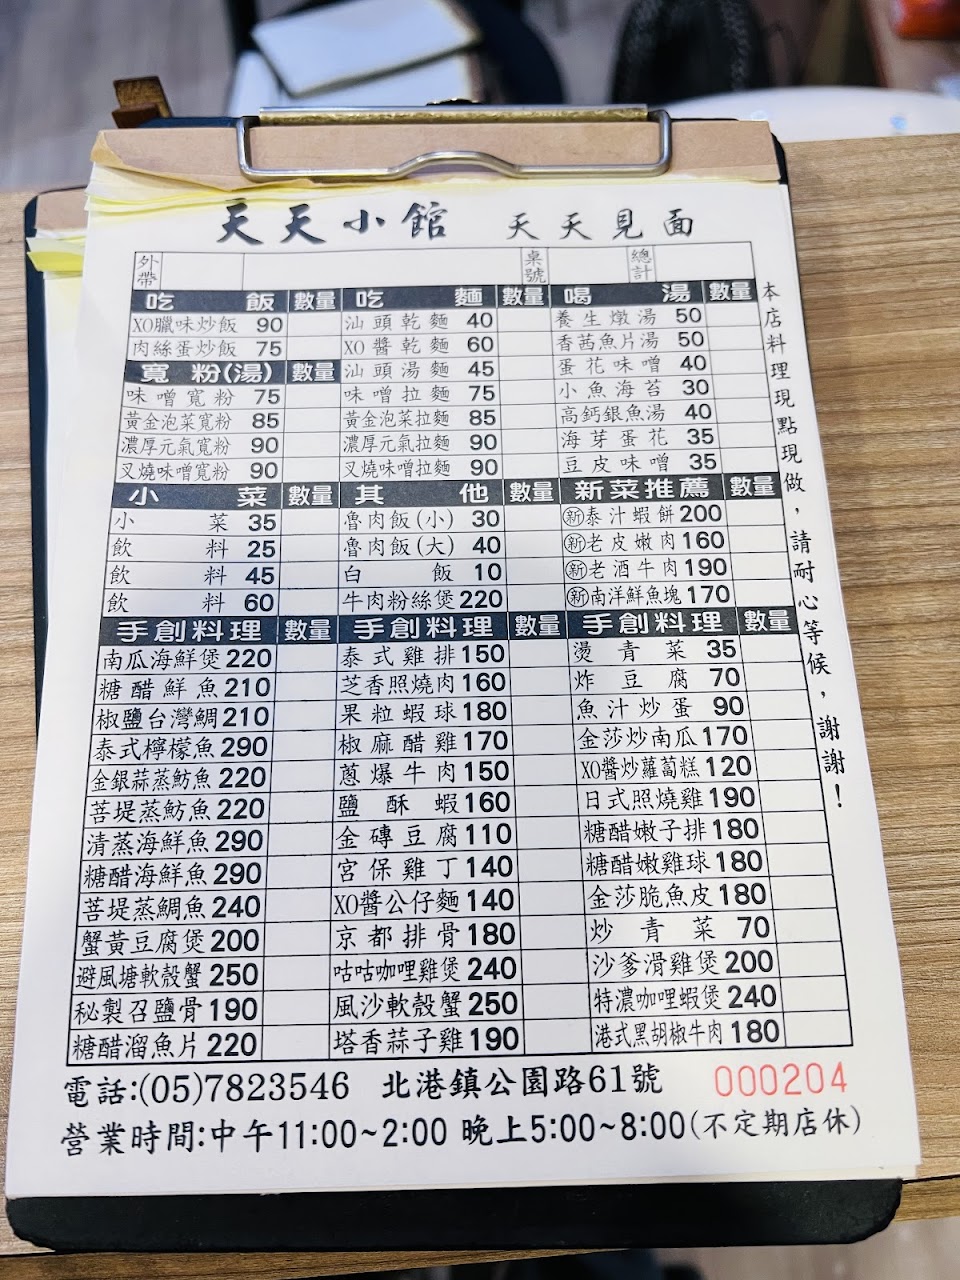 天天小館 天天見面
外帶 桌號 總計
吃飯 數量 吃麵 數量 喝湯 數量
XO臘味炒飯 90 汕頭乾麵 40 養生燉湯 50
肉絲蛋炒飯 75 XO醬乾麵 60 香茜魚片湯 50
寬粉(湯) 數量 汕頭湯麵 45 蛋花味噌 40
味噌寬粉 75 味噌拉麵 75 小魚海苔 30
黃金泡菜寬粉 85 黃金泡菜拉麵 85 高鈣銀魚湯 40
濃厚元氣寬粉 90 濃厚元氣拉麵 90 海芽蛋花 35
叉燒味噌寬粉 90 叉燒味噌拉麵 90 豆皮味噌 35
小菜 數量 其他 數量 新菜推薦 數量
小菜 35 魯肉飯(小) 30 新泰汁蝦餅 200
飲料 25 魯肉飯(大) 40 新老皮嫩肉 160
飲料 45 白飯 10 新老酒牛肉 190
飲料 60 牛肉粉絲煲 220 新南洋鮮魚塊 170
手創料理 數量 手創料理 數量 手創料理 數量
南瓜海鮮煲 220 泰式雞排 150 燙青菜 35
糖醋鮮魚 210 芝香照燒肉 160 炸豆腐 70
椒鹽台灣鯛 210 果粒蝦球 180 魚汁炒蛋 90
泰式檸檬魚 290 椒麻醋雞 170 金莎炒南瓜 170
金銀蒜蒸魴魚 220 蔥爆牛肉 150 XO醬炒蘿蔔糕 120
菩堤蒸魴魚 220 鹽酥蝦 160 日式照燒雞 190
清蒸海鮮魚 290 金磚豆腐 110 糖醋嫩子排 180
糖醋海鮮魚 290 宮保雞丁 140 糖醋嫩雞球 180
菩堤蒸鯛魚 240 XO醬公仔麵 140 金莎脆魚皮 180
蟹黃豆腐煲 200 京都排骨 180 炒青菜 70
避風塘軟殼蟹 250 咕咕咖哩雞煲 240 沙爹滑雞煲 200
秘製召鹽骨 190 風沙軟殼蟹 250 特濃咖哩蝦煲 240
糖醋溜魚片 220 塔香蒜子雞 190 港式黑胡椒牛肉 180
本店料理現點現做，請耐心等候，謝謝！
電話:(05)7823546 北港鎮公園路61號 000204
營業時間:中午11:00~2:00 晚上5:00~8:00(不定期店休)